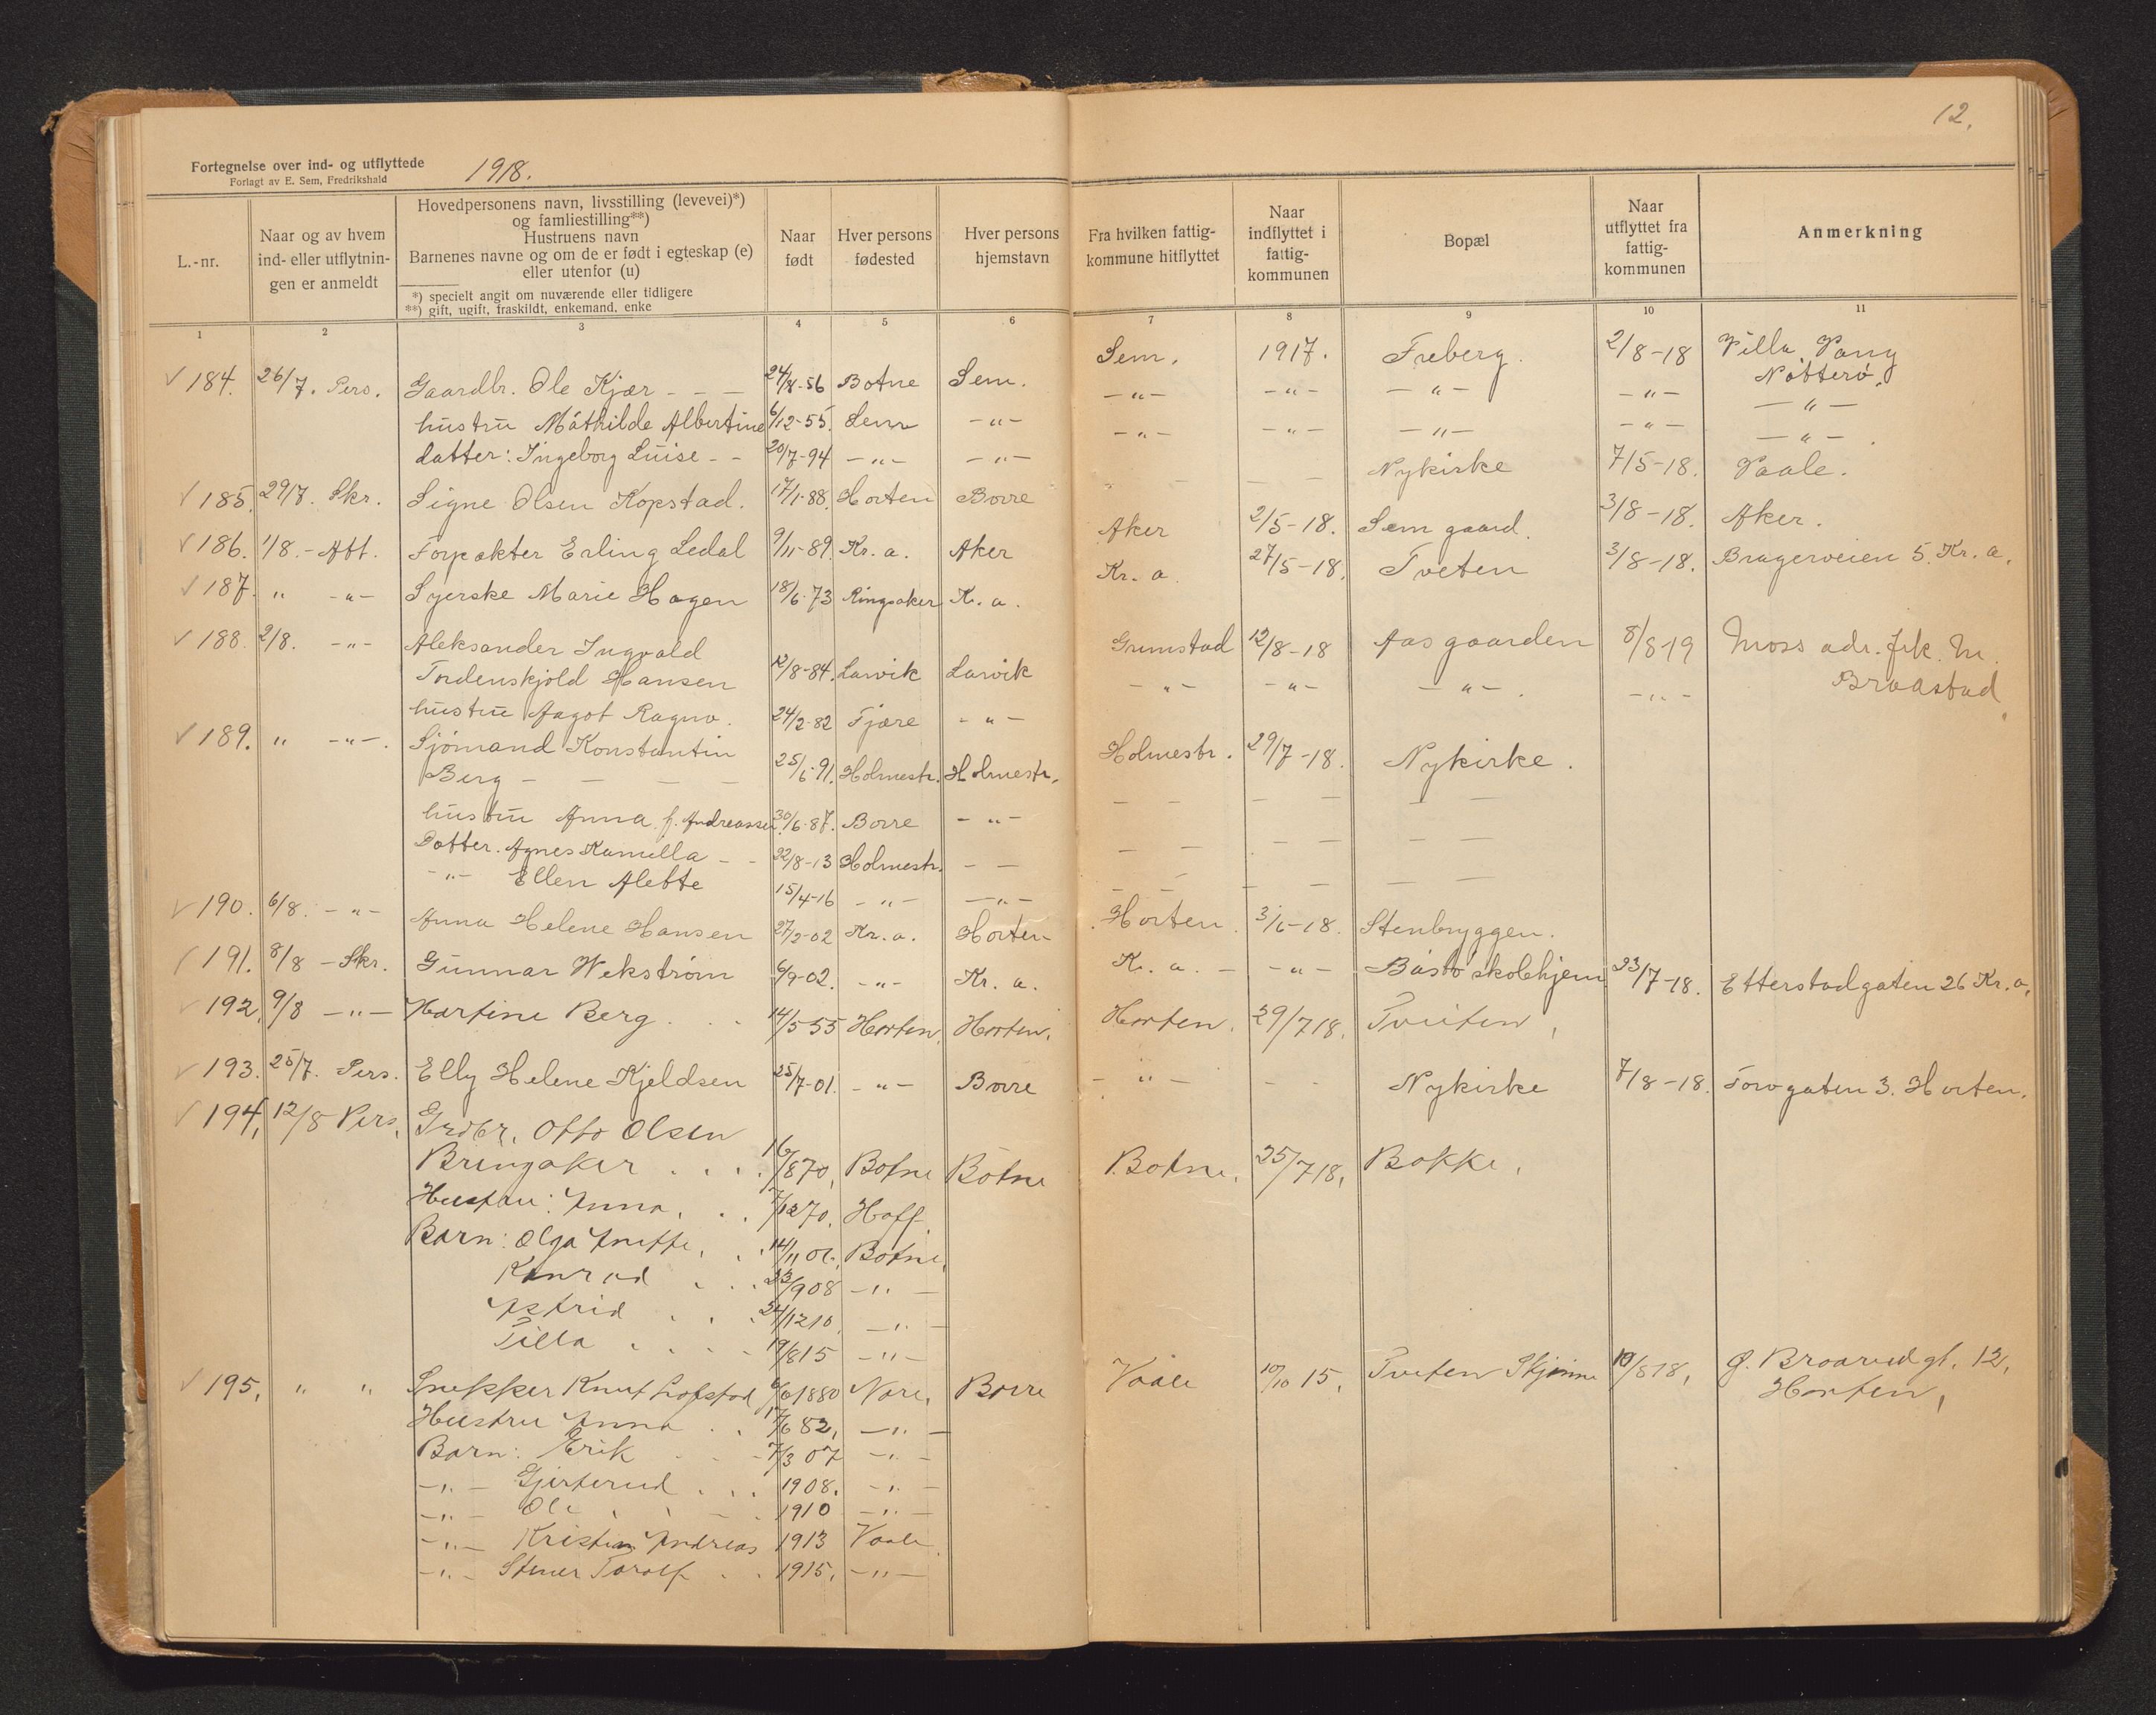 12.
Fortegnelse over ind- og utflyttede 1918.
Forlagt av E. Sem, Fredrikshald
L.-nr.
Naar og av hvem
ind- eller utflytnin-
gen er anmeldt
Hovedpersonens navn, livsstilling (levevei)*)
og famliestilling**)
Hustruens navn
Barnenes navne og om de er født i egteskap (e)
eller utenfor (u)
*) specielt angit om nuværende eller tidligere
**) gift, ugift, fraskildt, enkemand, enke
Naar
født
Hver persons
fødested
Hver persons
hjemstavn
Fra hvilken fattig-
kommune hitflyttet
Naar
indflyttet i
fattig-
kommunen
Bopæl
Naar
utflyttet fra
fattig-
kommunen
Anmerkning
1 2 3 4 5 6 7 8 9 10 11
184. 26/7. Pers. Gaardbr. Ole Kjær - - - 24/8-56 Botne Sem. Sem. 1917. Freberg. 2/8-18 Villa Vang
Nøtterø.
hustru Mathilde Albertine 6/12-55. Sem -"- -"- -"- -"- -"- -"-
datter: Ingeborg Luise - - 20/7-94 -"- -"- -"- -"- -"- -"- -"-
185. 29/7. Skr. Signe Olsen Kopstad. 17/1-88. Horten Borre - - - - Nykirke 7/5-18. Vaale.
186. 1/8. - Att. Forpakter Erling Sedal 9/11-89. Kr. a. Aker Aker 2/5-18. Sem gaard. 3/8-18. Aker.
187. " -"- Syerske Marie Hagen 18/6-73 Ringsaker Kr. a. Kr. a. 27/5-18. Tveten 3/8-18. Bragerveien 5. Kr. a.
188. 2/8. -"- Aleksander Ingvald
Tordenskjold Hansen 12/8-84. Larvik Larvik Grimstad 12/8-18 Aasgaarden 8/8-19 Moss adr. frk. M.
Braastad
hustru Aagot Ragnv. 24/2-82 Fjære -"- -"- -"- -"- -"-
189. " -"-. Sjömand Konstantin
Berg - - - - 25/6-91. Holmestr. Holmestr. Holmestr. 29/7-18. Nykirke.
hustru Anna f. Andreassen 30/6-87. Borre -"- - - - - - -
Datter. Agnes Kamilla - - 22/8-13 Holmestr. - - - - - - - -
-"- Ellen Alette 15/4-16 -"- -"- - - - - - -
190. 6/8. -"- Anna Helene Hansen 27/2-02 Kr. a. Horten Horten. 3/6-18. Stenbryggen.
191. 8/8 - Skr. Gunnar Wekstrøm 6/9-02. -"- Kr. a. Kr. a. - -"- Bastø skolehjem 23/7-18. Etterstadgaten 26 Kr. a.
192. 9/8 -"- Martine Berg . . . 14/5-55 Horten. Horten. Horten. 29/7 18. Tveiten,
193. 25/7. Pers. Elly Helene Kjeldsen 25/7-01. -"- Borre -"- - - Nykirke 7/8-18. Torvgaten 3. Horten.
194, 12/8 Pers, Grdbr. Otto Olsen
Bringaker . . . . 16/8 70, Botne Botne Botne. 25/7 18, Bakke,
Hustru: Anna, . . 7/12 70. Hoff.
Barn: Olga Anette, . . 14/11 01, Botne,
Konrad . . . 23/9 08 -"-
Astrid . . . 24/12 10. -"-
Tilla . . . . 19/8 15 -"-
195, " " Snekker Knut Lofstad 6/6 1880 Nore, Borre Vaale 10/10 15, Tveten Skjærn 10/8 18, G. Braarudgt. 12,
Horten,
Hustru Anna . . 17/6 82, -"-
Barn: Erik . . . 7/3 07 -"-
-"- Gjerterud . . . 1908. -"-
-"- Ole . . . . 1910 -"-
-"- Kristian Andreas 1913 Vaale.
-"- Stener Torolf . . 1915, -"-